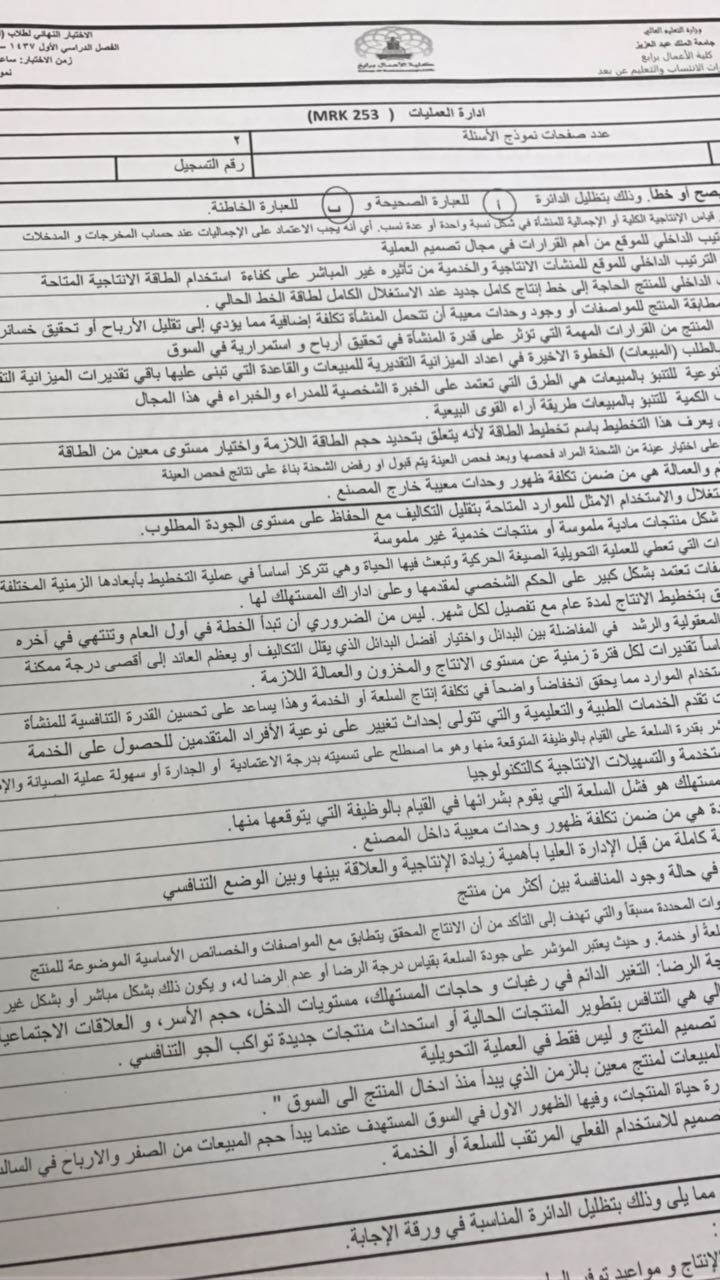 وزارة التعليم العالي
جامعة الملك عبد العزيز
كلية الأعمال برابغ
الانتساب والتعليم عن بعد
كلية الأعمال برابغ
الاختبار النهائي لطلاب
الفصل الدراسي الأول ١٤٣٧ –
زمن الاختبار:
ادارة العمليات ( MRK 253)
عدد صفحات نموذج الأسئلة
٢
رقم التسجيل
صح أو خطأ. وذلك بتظليل الدائرة أ للعبارة الصحيحة و ب للعبارة الخاطئة.
قياس الإنتاجية الكلية أو الإجمالية للمنشأة في شكل نسبة واحدة أو عدة نسب. أي أنه يجب الاعتماد على الإجماليات عند حساب المخرجات و المدخلات
الداخلي للموقع من أهم القرارات في مجال تصميم العملية
الترتيب الداخلي للموقع للمنشات الانتاجية والخدمية من تأثيره غير المباشر على كفاءة استخدام الطاقة الانتاجية المتاحة
الداخلي للمنتج الحاجة إلى خط إنتاج كامل جديد عند الاستغلال الكامل لطاقة الخط الحالي .
مطابقة المنتج للمواصفات أو وجود وحدات معيبة أن تتحمل المنشأة تكلفة إضافية مما يؤدي إلى تقليل الأرباح أو تحقيق
المنتج من القرارات المهمة التي تؤثر على قدرة المنشأة في تحقيق أرباح و استمرارية في السوق
بالطلب (المبيعات) الخطوة الاخيرة في اعداد الميزانية التقديرية للمبيعات والقاعدة التي تبنى عليها باقي تقديرات الميزانية
للتنبؤ بالمبيعات هي الطرق التي تعتمد على الخبرة الشخصية للمدراء والخبراء في هذا المجال
الكمية للتنبؤ بالمبيعات طريقة آراء القوى البيعية .
يعرف هذا التخطيط باسم تخطيط الطاقة لأنه يتعلق بتحديد حجم الطاقة اللازمة واختيار مستوى معين من الطاقة
على اختيار عينة من الشحنة المراد فحصها وبعد فحص العينة يتم قبول او رفض الشحنة بناءً على نتائج فحص العينة
والعمالة هي من ضمن تكلفة ظهور وحدات معيبة خارج المصنع .
والاستخدام الامثل للموارد المتاحة بتقليل التكاليف مع الحفاظ على مستوى الجودة المطلوب.
شكل منتجات مادية ملموسة أو منتجات خدمية غير ملموسة
التي تعطي للعملية التحويلية الصيغة الحركية وتبعث فيها الحياة وهي تتركز أساساً في عملية التخطيط بأبعادها الزمنية المختلفة
تعتمد بشكل كبير على الحكم الشخصي لمقدمها وعلى ادراك المستهلك لها .
بتخطيط الانتاج لمدة عام مع تفصيل لكل شهر. ليس من الضروري أن تبدأ الخطة في أول العام وتنتهي في أخره
المعقولية والرشد في المفاضلة بين البدائل واختيار أفضل البدائل الذي يقلل التكاليف أو يعظم العائد إلى أقصى درجة ممكنة
تقديرات لكل فترة زمنية عن مستوى الانتاج والمخزون والعمالة اللازمة .
الموارد مما يحقق انخفاضاً واضحاً في تكلفة إنتاج السلعة أو الخدمة وهذا يساعد على تحسين القدرة التنافسية للمنشأة
تقدم الخدمات الطبية والتعليمية والتي تتولى إحداث تغيير على نوعية الأفراد المتقدمين للحصول على الخدمة
بقدرة السلعة على القيام بالوظيفة المتوقعة منها وهو ما اصطلح على تسميته بدرجة الاعتمادية أو الجدارة أو سهولة عملية الصيانة
والتسهيلات الانتاجية كالتكنولوجيا
هو فشل السلعة التي يقوم بشرائها في القيام بالوظيفة التي يتوقعها منها.
هي من ضمن تكلفة ظهور وحدات معيبة داخل المصنع .
كاملة من قبل الإدارة العليا بأهمية زيادة الإنتاجية والعلاقة بينها وبين الوضع التنافسي
في حالة وجود المنافسة بين أكثر من منتج
المحددة مسبقاً والتي تهدف إلى التأكد من أن الانتاج المحقق يتطابق مع المواصفات والخصائص الأساسية الموضوعة للمنتج
أو خدمة. و حيث يعتبر المؤشر على جودة السلعة بقياس درجة الرضا أو عدم الرضا له، و يكون ذلك بشكل مباشر أو بشكل غير
الرضا: التغير الدائم في رغبات و حاجات المستهلك، مستويات الدخل، حجم الأسر، و العلاقات
هي التنافس بتطوير المنتجات الحالية أو استحداث منتجات جديدة تواكب الجو التنافسي .
تصميم المنتج و ليس فقط في العملية التحويلية
المبيعات لمنتج معين بالزمن الذي يبدأ منذ ادخال المنتج الى السوق " .
حياة المنتجات، وفيها الظهور الاول في السوق المستهدف عندما يبدأ حجم المبيعات من الصفر والارباح في
للاستخدام الفعلي المرتقب للسلعة أو الخدمة .
مما يلى وذلك بتظليل الدائرة المناسبة في ورقة الإجابة.
الإنتاج و مواعيد